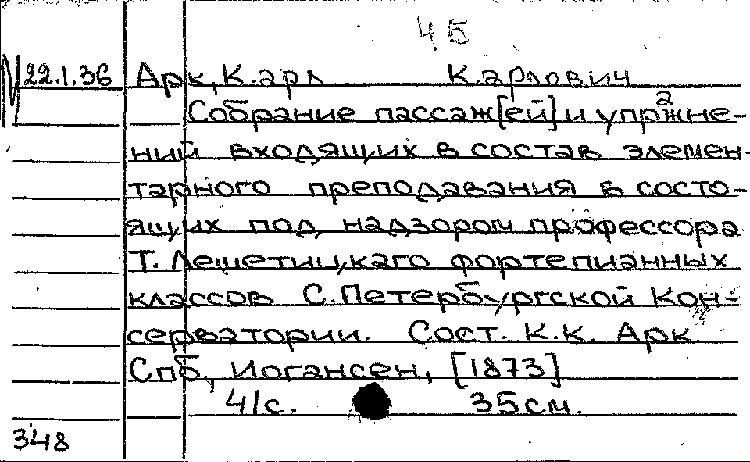 45
22.1.36 Арк, Карл Карлович
Собрание пассаж[ей] и упражне-
ний входящих в состав элемен-
тарного преподавания в состо-
ящих под надзором профессора
Т. Лешетицкаго фортепианных
классов С.Петербургской Кон-
серватории. Сост. К.К. Арк
Спб, Иогансен, [1873]
41с. 35см.
348